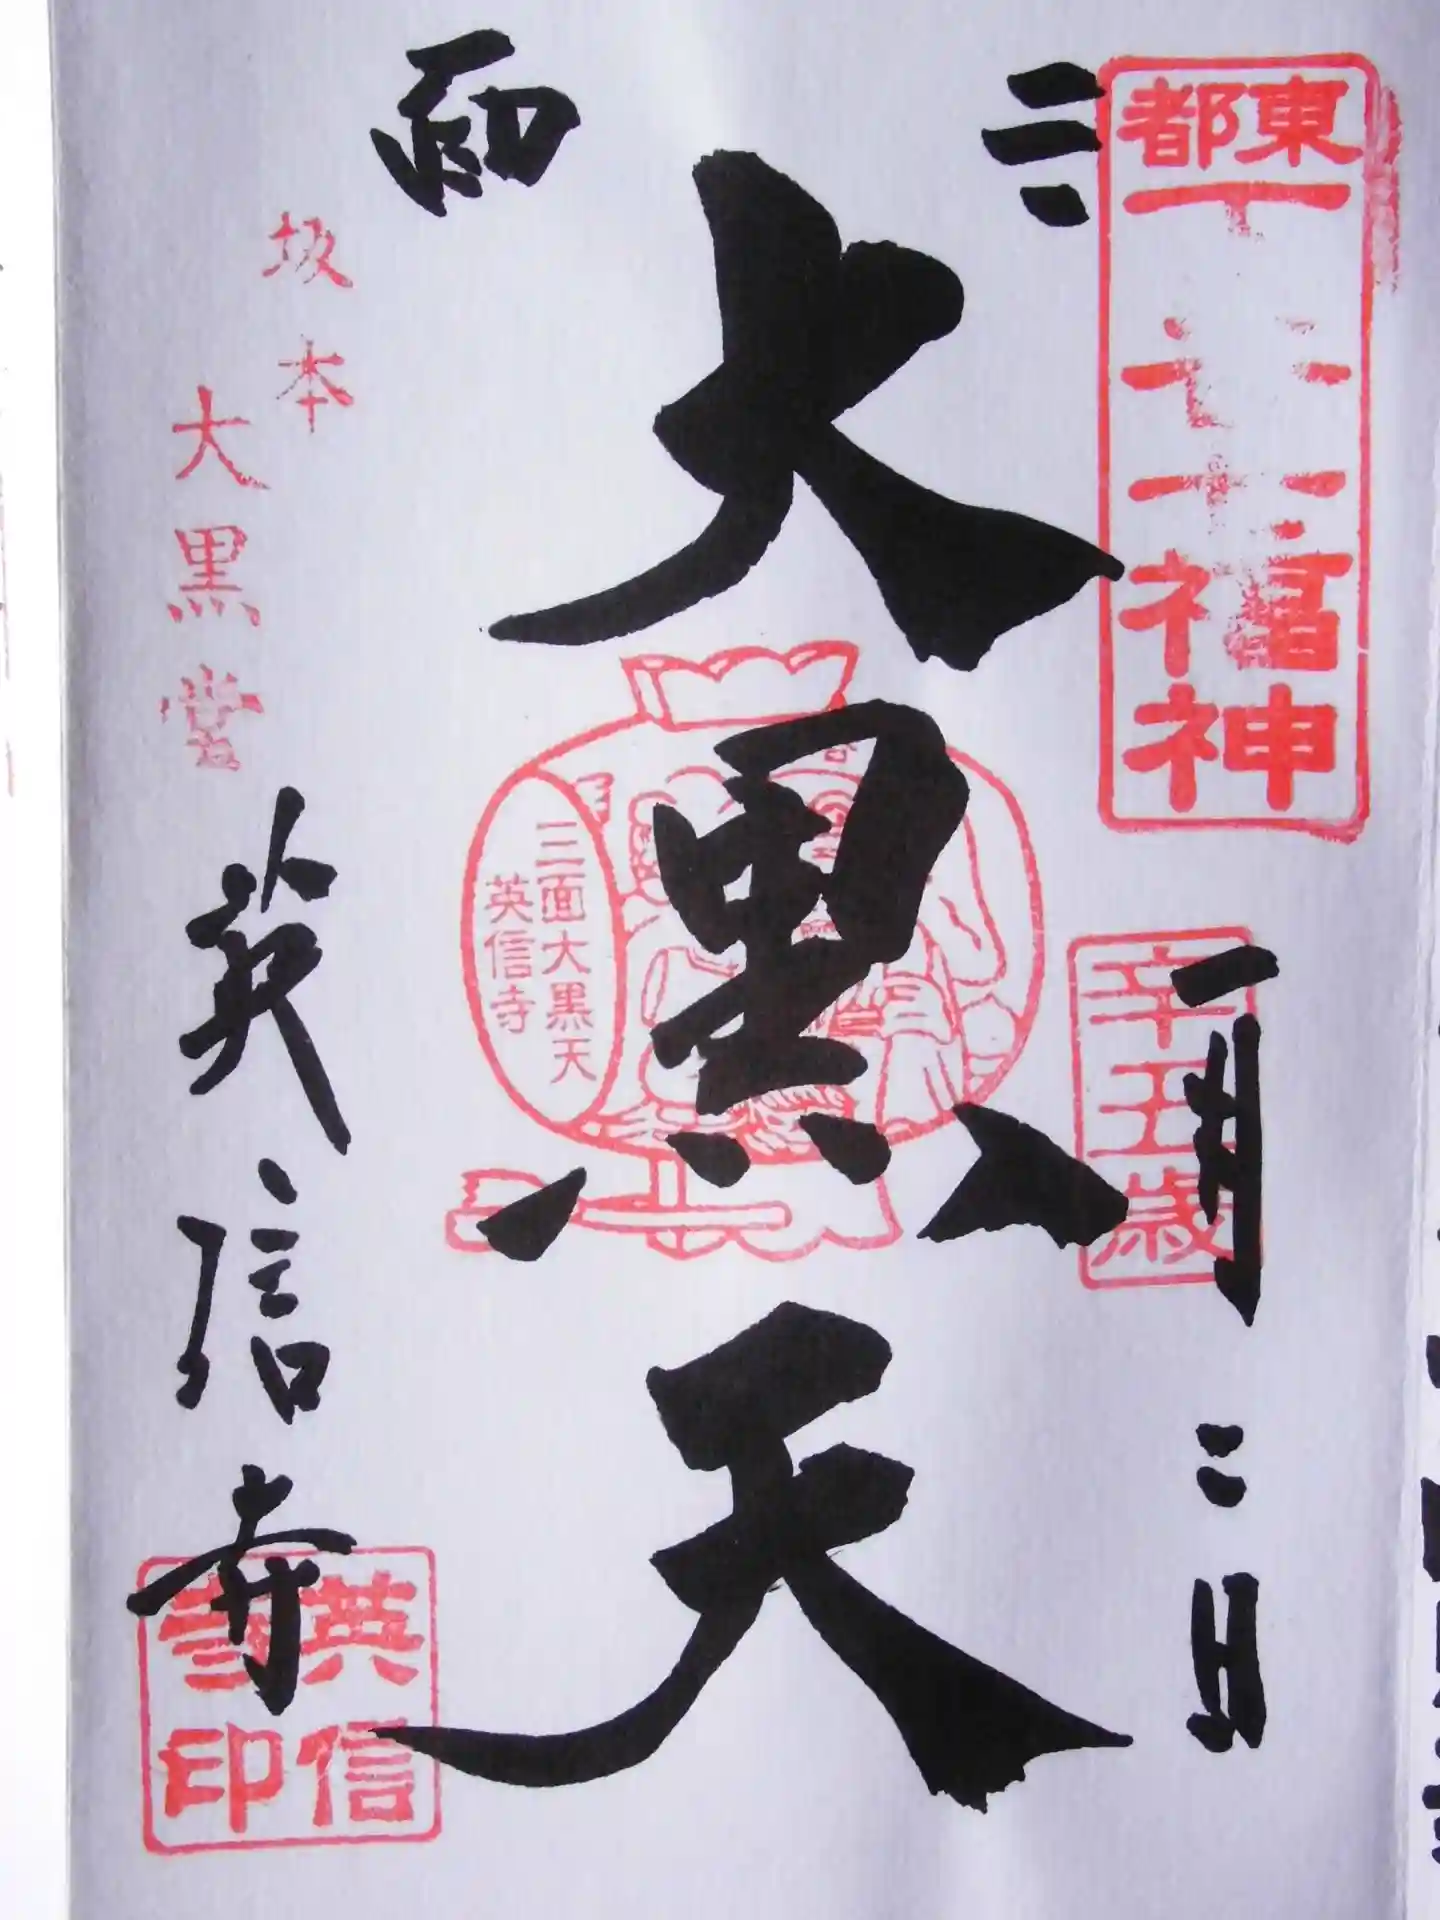 東都
福神
辛丑歳
一月二日
三面
大黒天
三面大黒天
英信寺
坂本
大黒堂
英信寺
英信
寺印